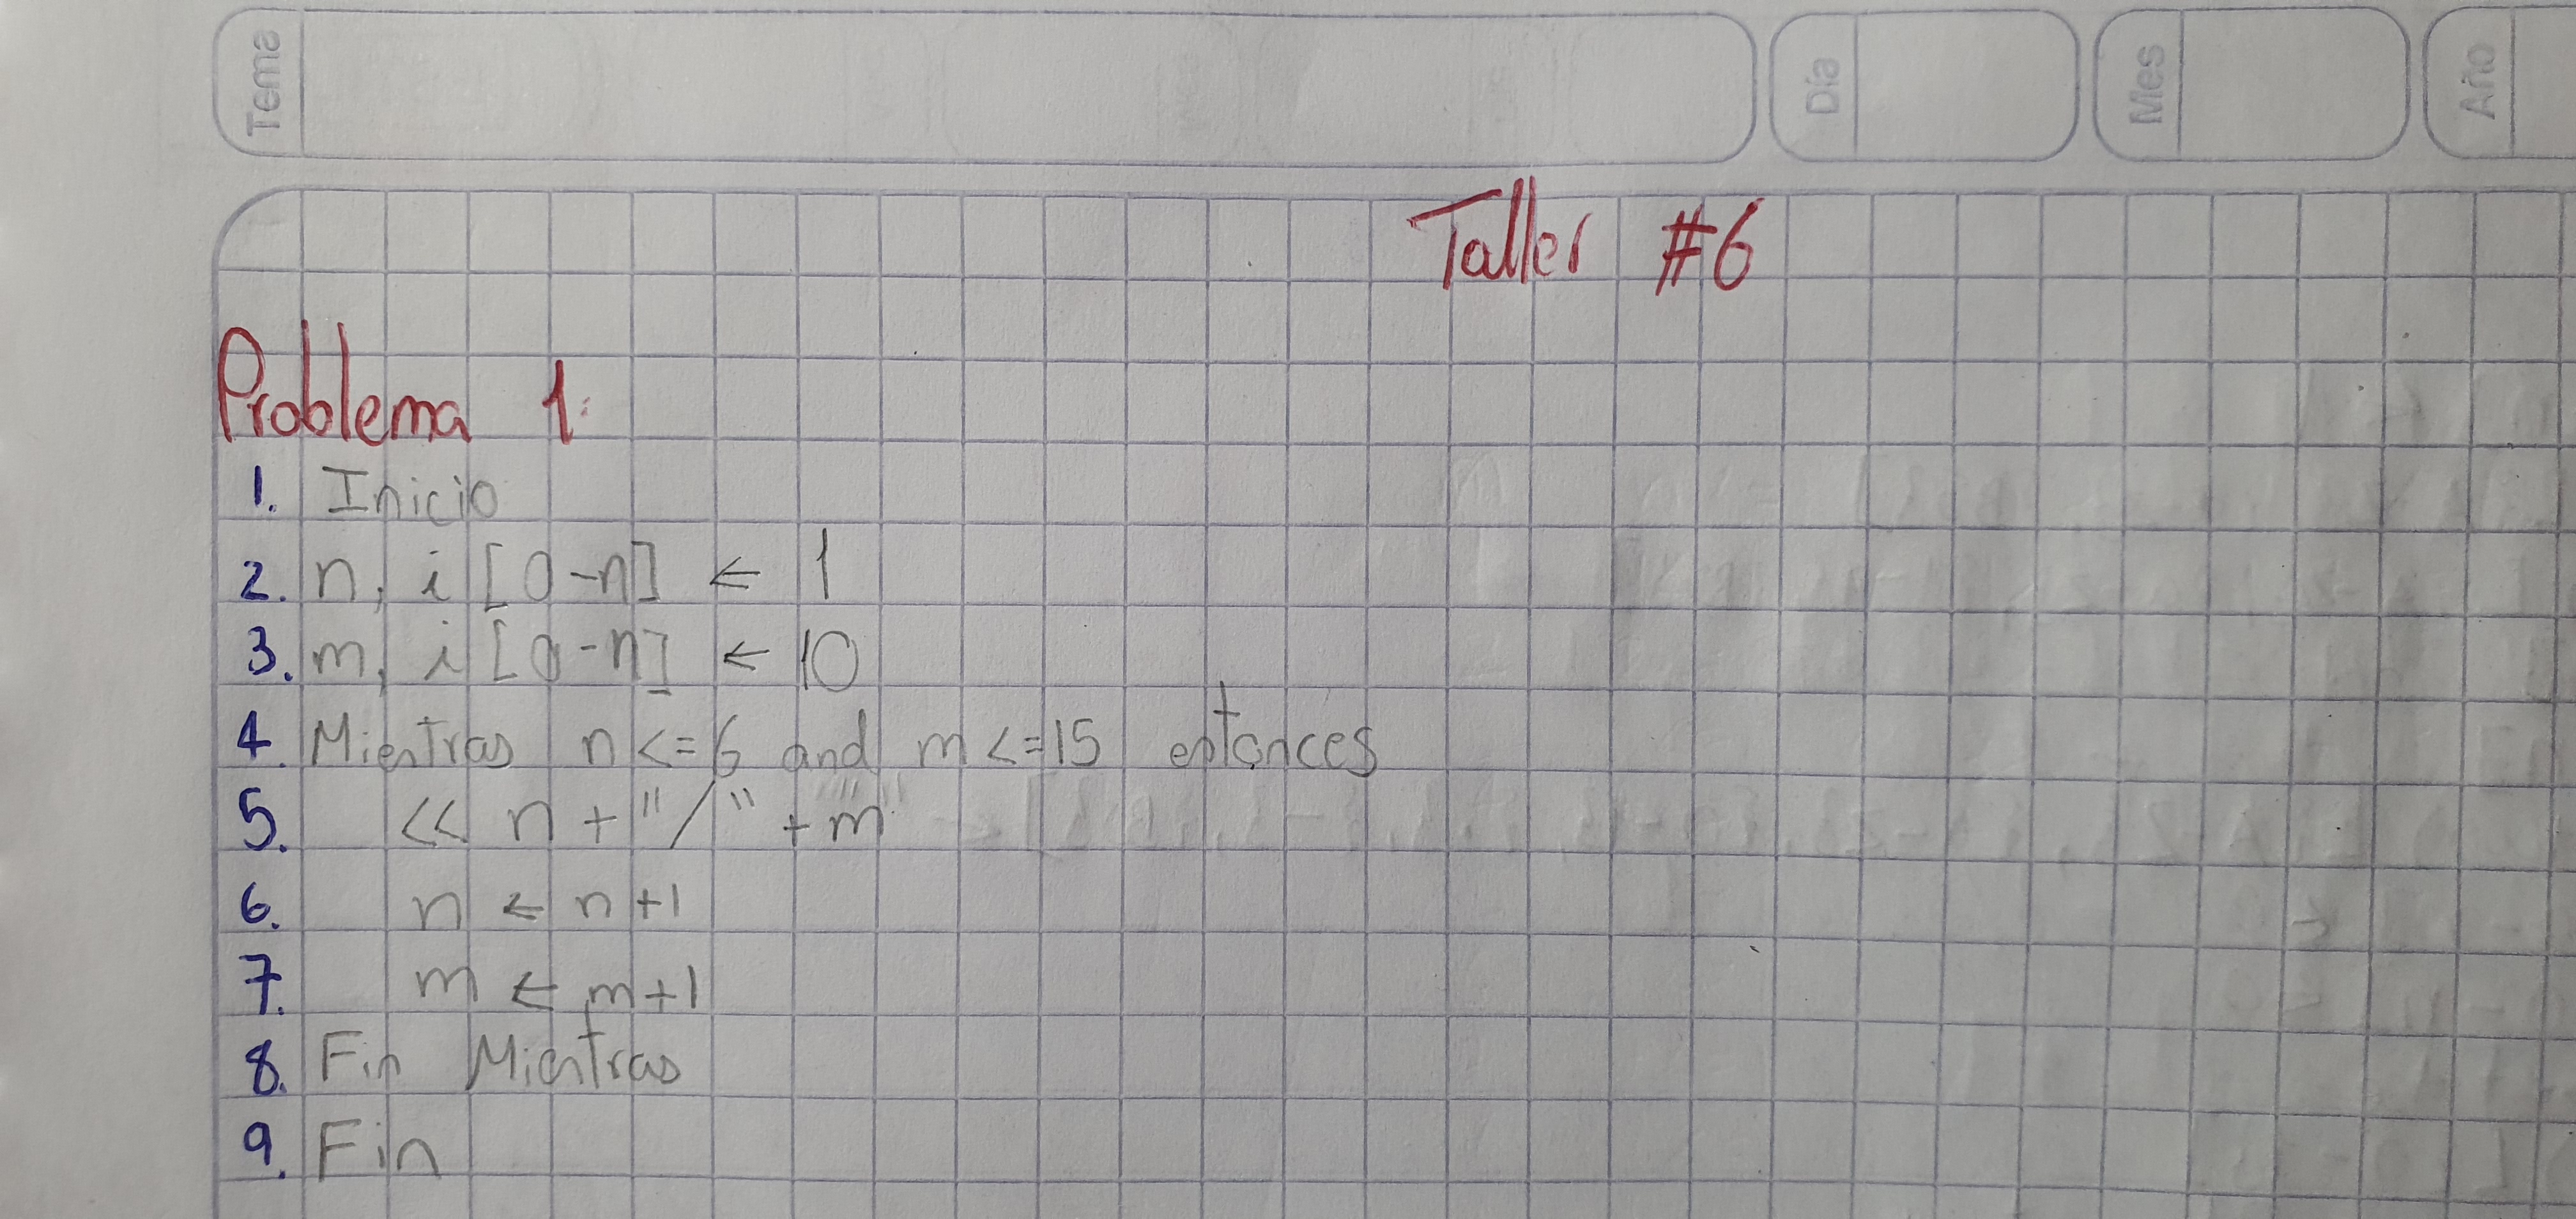 Tema
Día
Mes
Año
Taller #6
Problema 1:
1. Inicio
2. n, i [0-n] ← 1
3. m, i [0-n] ← 10
4. Mientras n <= 6 and m <= 15 entonces
5. << n + "/" + m
6. n ← n+1
7. m ← m+1
8. Fin Mientras
9. Fin